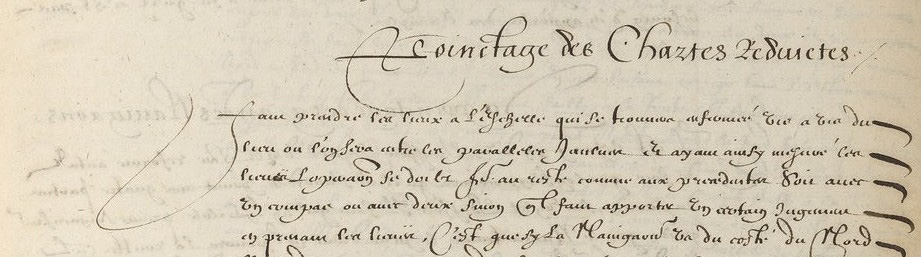 Poinctage des Chartes Reduictes
Faut prendre les lieux a l'Eschelle qui se trouvera enfermé vis a vis du
lieu ou l'on sera entre les paralleles & ayant ainsy mesuré les
lieues L'operaon se doibt f.e au reste comme aux precedentes Soit avec
un compas ou avec deux sinon qu'il faut apporter un certain Jugement
en prenant les lieuës, C'est que sy La Navigaon va du costé du Nord